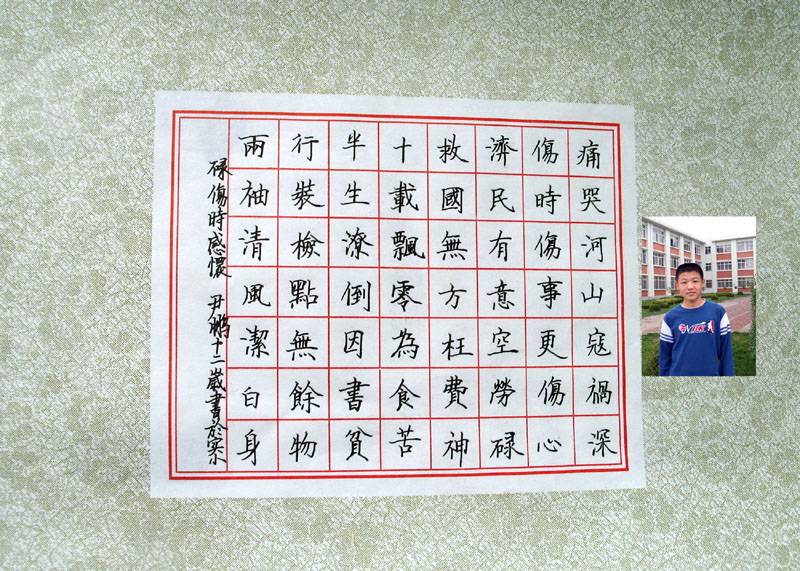 痛哭河山寇禍深
傷時傷事更傷心
濟民有意空勞碌
救國無方枉費神
十載飄零為食苦
半生潦倒因書貧
行裝檢點無餘物
兩袖清風潔白身
碌傷時感懷 尹鵬十二歲書於案